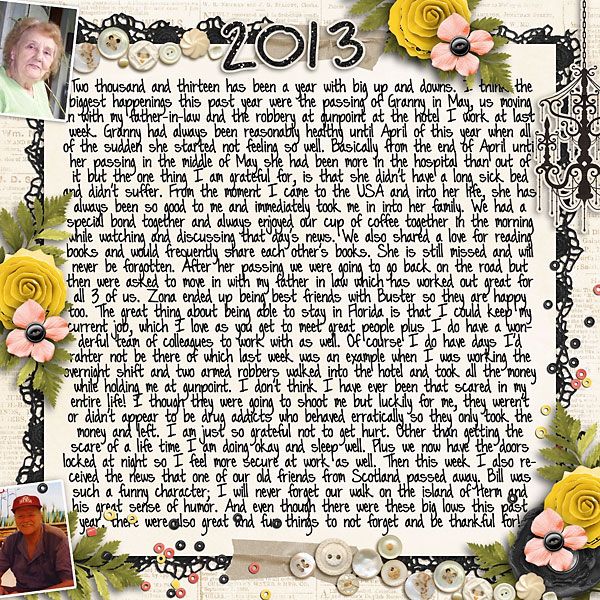 2013
Two thousand and thirteen has been a year with big up and downs. I think the
biggest happenings this past year were the passing of Granny in May, us moving
in with my father-in-law and the robbery at gunpoint at the hotel I work at last
week. Granny had always been reasonably healthy until April of this year when all
of the sudden she started not feeling so well. Basically from the end of April until
her passing in the middle of May she had been more in the hospital than out of
it but the one thing I am grateful for, is that she didn't have a long sick bed
and didn't suffer. From the moment I came to the USA and into her life, she has
always been so good to me and immediately took me in into her family. We had a
special bond together and always enjoyed our cup of coffee together in the morning
while watching and discussing that day's news. We also shared a love for reading
books and would frequently share each other's books. She is still missed and will
never be forgotten. After her passing we were going to go back on the road but
then were asked to move in with my father in law which has worked out great for
all 3 of us. Zona ended up being best friends with Buster so they are happy
too. The great thing about being able to stay in Florida is that I could keep my
current job, which I love as you get to meet great people plus I do have a won-
derful team of colleagues to work with as well. Of course I do have days I'd
rahter not be there of which last week was an example when I was working the
overnight shift and two armed robbers walked into the hotel and took all the money
while holding me at gunpoint. I don't think I have ever been that scared in my
entire life! I though they were going to shoot me but luckily for me, they weren't
or didn't appear to be drug addicts who behaved erratically so they only took the
money and left. I am just so grateful not to get hurt. Other than getting the
scare of a life time I am doing okay and sleep well. Plus we now have the doors
locked at night so I feel more secure at work as well. Then this week I also re-
ceived the news that one of our old friends from Scotland passed away. Bill was
such a funny character; I will never forget our walk on the island of Herm and
his great sense of humor. And even though there were these big lows this past
year, there were also great and fun things to not forget and be thankful for!